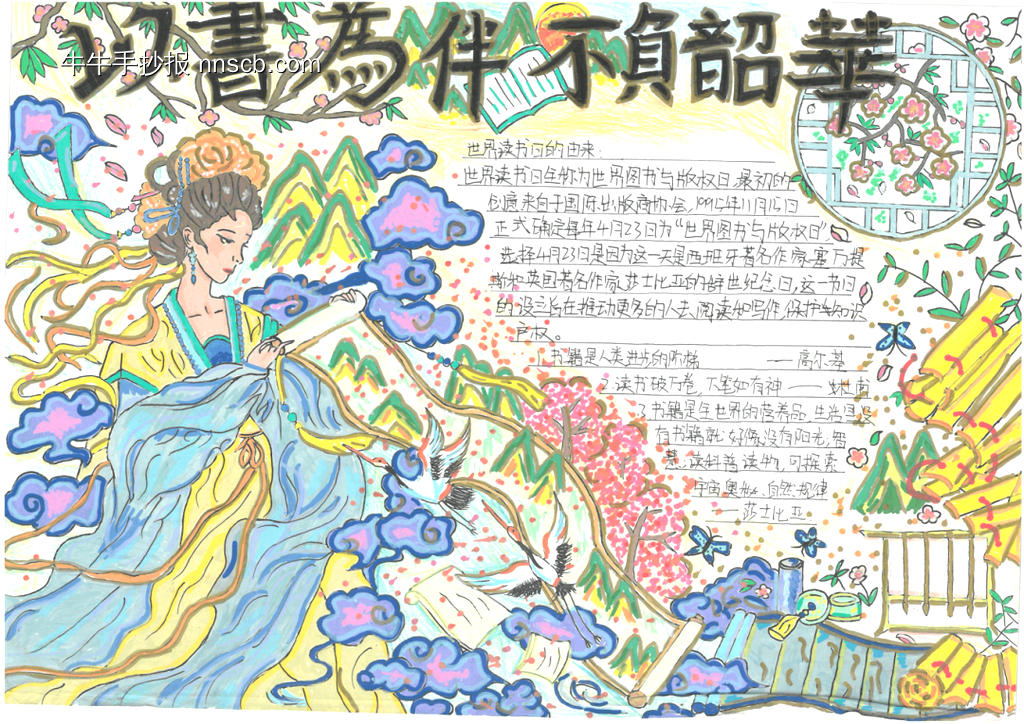 以書為伴 不負韶華
牛牛手抄报 nnscb.com
世界读书日的由来：
世界读书日全称为世界图书与版权日,最初的
创意来自于国际出版商协会,1995年11月15日
正式确定每年4月23日为“世界图书与版权日”,
选择4月23日是因为这一天是西班牙著名作家塞万提
斯和英国著名作家莎士比亚的辞世纪念日,这一节日
的设立旨在推动更多的人去阅读和写作,保护知识
产权。
1.书籍是人类进步的阶梯 ——高尔基
2.读书破万卷,下笔如有神 ——杜甫
3.书籍是全世界的营养品,生活里没
有书籍就好像没有阳光,智
慧,读科普读物,可探索
宇宙奥秘、自然规律
——莎士比亚